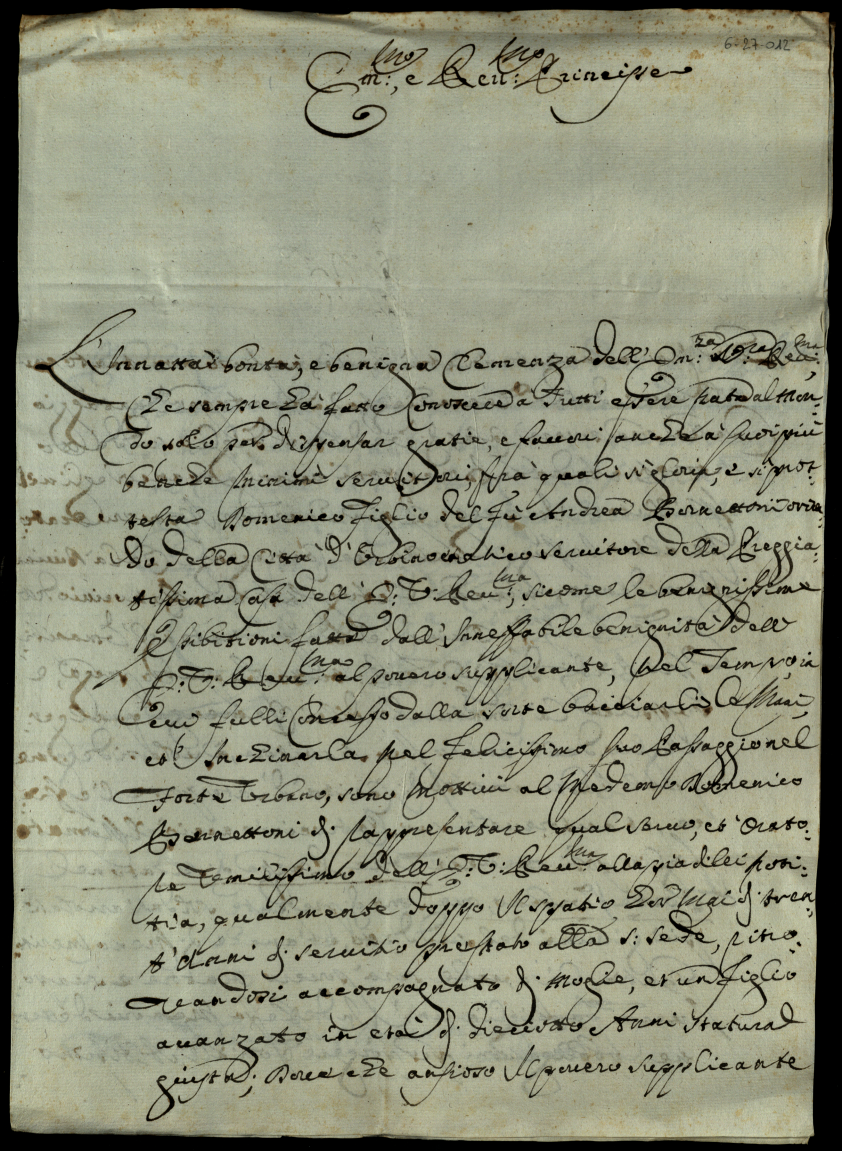 6-27-012
Em:mo, e Reu:mo Principe
L'Innatta bontà, e benigna Clemenza dell'Em:za V:ra Reu:ma,
che sempre hà fatto conoscere à Tutti essere nata al Mon-
do solo per dispensar gratie, e fauori anche à suoi più
benche minimi seruitori, frà quali si gloria, e si prot-
testa Domenico Figlio del fù Andrea Bernettoni oriun-
do della Città d'Urbino antico seruitore della Preggia-
tissima Casa dell'E:V:Reu:ma, sicome le benignissime
Esibitioni fatte dall'Inneffabile benignità dell'
E:V:Reu:ma al pouero supplicante, nel Tempo, in
cui fulli concesso dalla sorte bacciarli le Mani,
et Inchinarla nel felicissimo suo Passaggio nel
Forte Urbano, sono mottiui al Medemo Domenico
Bernettoni di rappresentare qual seruo, et Orato-
re Umilissimo dell'E:V:Reu:ma alla pia di lei noti-
tia, qualmente doppo Il spatio hor mai di tren-
t'anni di seruitio prestato alla S: Sede, ritro-
uandosi accompagnato di Moglie, et un figlio
auanzato in età di dieciotto Anni statura
giusta; Doue che ansioso Il pouero supplicante